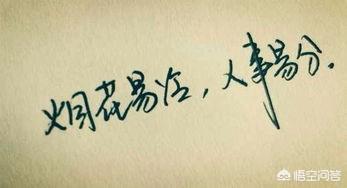 烟花易冷,人事易分.
悟空问答